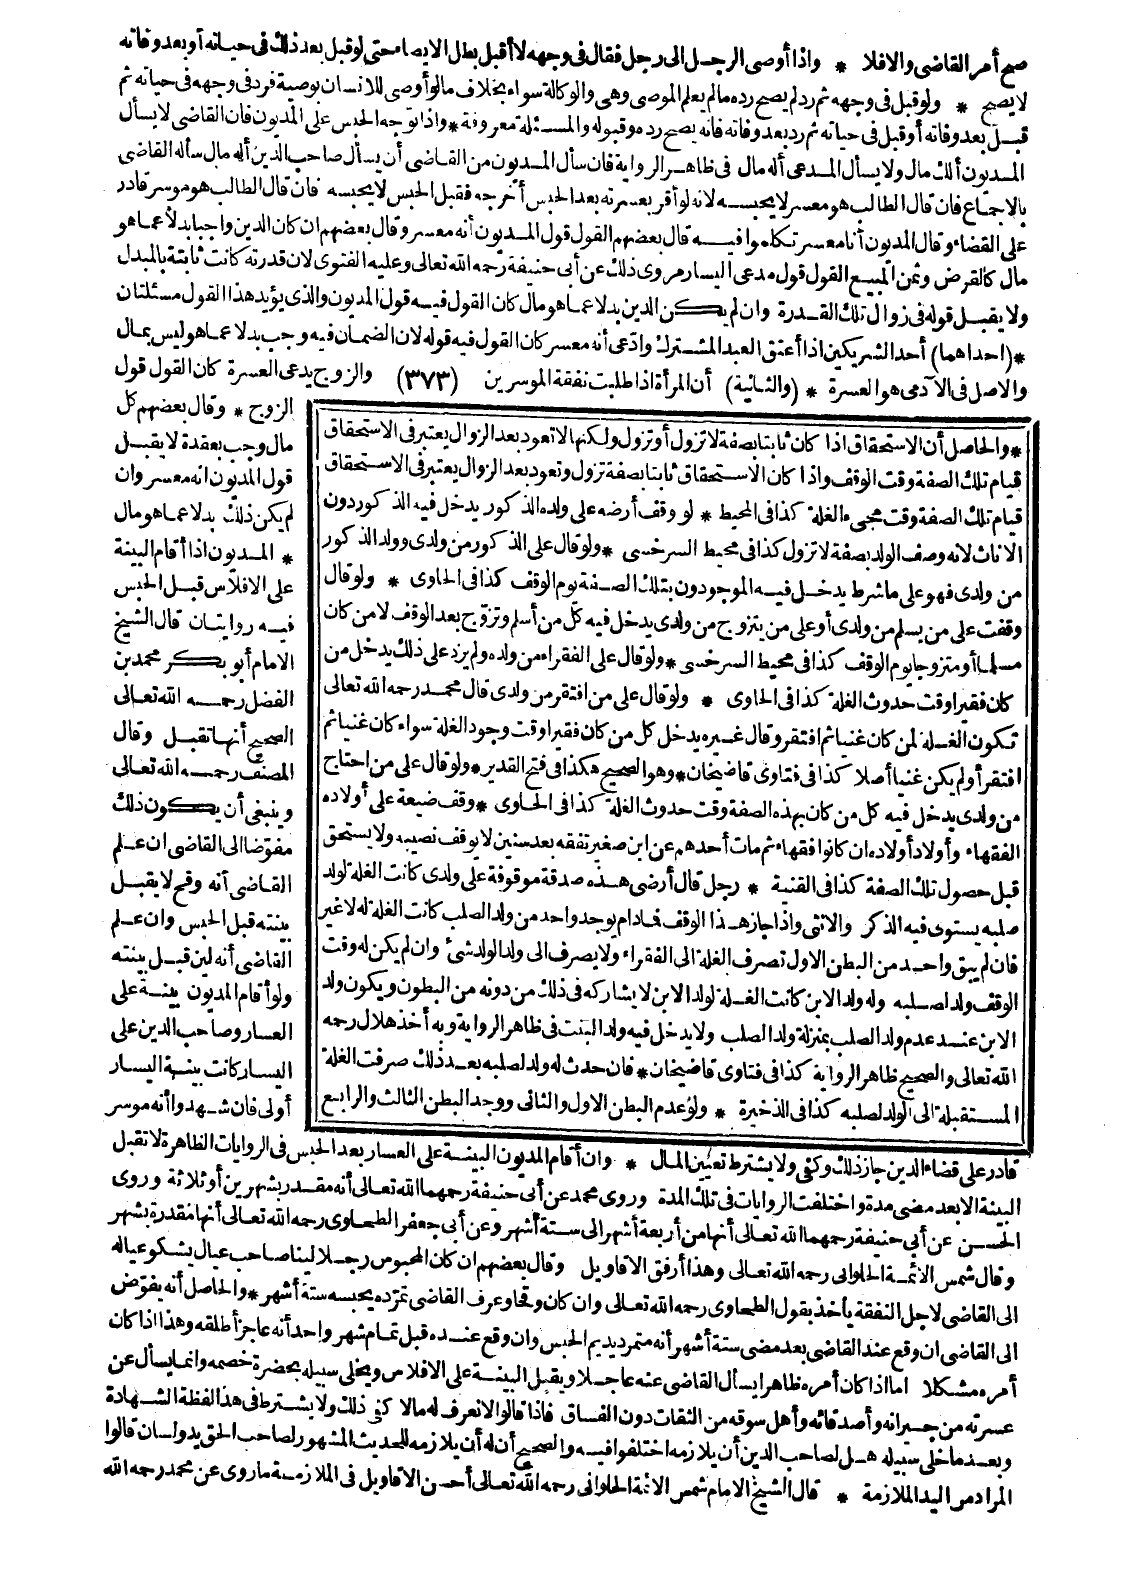 صح أمر القاضى والافلا * واذا أوصى الرجل الى رجل فقال فى وجهه لا أقبل بطل الايصاء حتى لو قبل بعد ذلك فى حياته أو بعد وفاته
لا يصح * ولو قبل فى وجهه ثم رد لم يصح رده ما لم يعلم الموصى وهى والوكالة سواء بخلاف ما لو أوصى للانسان بوصية فرد فى وجهه فى حياته ثم
قبل بعد وفاته أو قبل فى حياته ثم رد بعد وفاته فانه يصح رده وقبوله والمسئلة معروفة * واذا توجه الحبس على المديون فان القاضى لا يسأل
المديون ألك مال ولا يسأل المدعى أله مال فى ظاهر الرواية فان سأل المديون من القاضى أن يسأل صاحب الدين أله مال سأله القاضى
بالاجماع فان قال الطالب هو معسر لا يحبسه لانه لو أقر بعسرته بعد الحبس أخرجه فقبل الحبس لا يحبسه فان قال الطالب هو موسر قادر
على القضاء وقال المديون أنا معسر تكلموا فيه قال بعضهم القول قول المديون أنه معسر وقال بعضهم ان كان الدين واجبا بدلا عما هو
مال كالقرض وثمن المبيع القول قول مدعى اليسار مروى ذلك عن أبى حنيفة رحمه الله تعالى وعليه الفتوى لان قدرته كانت ثابتة بالمبدل
ولا يقبل قوله فى زوال تلك القدرة وان لم يكن الدين بدلا عما هو مال كان القول فيه قول المديون والذى يؤيد هذا القول مسئلتان
*(احداهما) أحد الشريكين اذا أعتق العبد المشترك وادّعى أنه معسر كان القول فيه قوله لان الضمان فيه وجب بدلا عما هو ليس بمال
والاصل فى الآدمى هو العسرة * (والثانية) أن المرأة اذا طلبت نفقة الموسرين (٣٧٣) والزوج يدعى العسرة كان القول قول
الزوج * وقال بعضهم كل
مال وجب بعقدة لا يقبل
قول المديون انه معسر وان
لم يكن ذلك بدلا عما هو مال
* المديون اذا أقام البينة
على الافلاس قبل الحبس
فيه روايتان قال الشيخ
الامام أبو بكر محمد بن
الفضل رحمه الله تعالى
الصحيح أنها تقبل وقال
المصنف رحمه الله تعالى
وينبغى أن يكون ذلك
مفوّضا الى القاضى ان علم
القاضى أنه وقح لا يقبل
بينته قبل الحبس وان علم
القاضى أنه لين قبل بينته
ولو أقام المديون بينة على
العسار وصاحب الدين على
اليسار كانت بينة اليسار
أولى فان شهدوا أنه موسر
*والحاصل أن الاستحقاق اذا كان ثابتا بصفة لا تزول أو تزول ولكنها لا تعود بعد الزوال يعتبر فى الاستحقاق
قيام تلك الصفة وقت الوقف واذا كان الاستحقاق ثابتا بصفة تزول وتعود بعد الزوال يعتبر فى الاستحقاق
قيام تلك الصفة وقت مجىء الغلة كذا فى المحيط * لو وقف أرضه على ولده الذكور يدخل فيه الذكور دون
الاناث لانه وصف الولد بصفة لا تزول كذا فى محيط السرخسى * ولو قال على الذكور من ولدى وولد الذكور
من ولدى فهو على ما شرط يدخل فيه الموجودون بتلك الصفة يوم الوقف كذا فى الحاوى * ولو قال
وقفت على من يسلم من ولدى أو على من يتزوج من ولدى يدخل فيه كل من أسلم وتزوّج بعد الوقف لا من كان
مسلما أو متزوجا يوم الوقف كذا فى محيط السرخسى * ولو قال على الفقراء من ولده ولم يزد على ذلك يدخل من
كان فقيرا وقت حدوث الغلة كذا فى الحاوى * ولو قال على من افتقر من ولدى قال محمد رحمه الله تعالى
تكون الغلة لمن كان غنيا ثم افتقر وقال غيره يدخل كل من كان فقيرا وقت وجود الغلة سواء كان غنيا ثم
افتقر أو لم يكن غنيا أصلا كذا فى فتاوى قاضيخان * وهو الصحيح هكذا فى فتح القدير * ولو قال على من احتاج
من ولدى يدخل فيه كل من كان بهذه الصفة وقت حدوث الغلة كذا فى الحاوى * وقف ضيعة على أولاده
الفقهاء وأولاد أولاده ان كانوا فقهاء ثم مات أحدهم عن ابن صغير تفقه بعد سنين لا يوقف نصيبه ولا يستحق
قبل حصول تلك الصفة كذا فى القنية * رجل قال أرضى هذه صدقة موقوفة على ولدى كانت الغلة لولد
صلبه يستوى فيه الذكر والانثى واذا جاز هذا الوقف فما دام يوجد واحد من ولد الصلب كانت الغلة له لا غير
فان لم يبق واحد من البطن الاول تصرف الغلة الى الفقراء ولا يصرف الى ولد الولد شئ وان لم يكن له وقت
الوقف ولد لصلبه وله ولد الابن كانت الغلة لولد الابن لا يشاركه فى ذلك من دونه من البطون ويكون ولد
الابن عند عدم ولد الصلب بمنزلة ولد الصلب ولا يدخل فيه ولد البنت فى ظاهر الرواية وبه أخذ هلال رحمه
الله تعالى والصحيح ظاهر الرواية كذا فى فتاوى قاضيخان * فان حدث له ولد لصلبه بعد ذلك صرفت الغلة
المستقبلة الى الولد لصلبه كذا فى الذخيرة * ولو عدم البطن الاول والثانى ووجد البطن الثالث والرابع
قادر على قضاء الدين جاز ذلك وكفى ولا يشترط تعيين المال * وان أقام المديون البينة على العسار بعد الحبس فى الروايات الظاهرة لا تقبل
البينة الا بعد مضى مدة واختلفت الروايات فى تلك المدة وروى محمد عن أبى حنيفة رحمهما الله تعالى أنه مقدر بشهرين أو ثلاثة وروى
الحسن عن أبى حنيفة رحمهما الله تعالى أنها من أربعة أشهر الى ستة أشهر وعن أبى جعفر الطحاوى رحمه الله تعالى أنها مقدرة بشهر
وقال شمس الائمة الحلوانى رحمه الله تعالى وهذا أرفق الاقاويل وقال بعضهم ان كان المحبوس رجلا لينا صاحب عيال يشكو عياله
الى القاضى لاجل النفقة يأخذ بقول الطحاوى رحمه الله تعالى وان كان وقحا وعرف القاضى تمرّده يحبسه ستة أشهر * والحاصل أنه يفوّض
الى القاضى ان وقع عند القاضى بعد مضى ستة أشهر أنه متمرد يديم الحبس وان وقع عنده قبل تمام شهر واحد أنه عاجز أطلقه وهذا اذا كان
أمره مشكلا اما اذا كان أمره ظاهرا يسأل القاضى عنه عاجلا ويقبل البينة على الافلاس ويخلى سبيله بحضرة خصمه وانما يسأل عن
عسرته من جيرانه وأصدقائه وأهل سوقه من الثقات دون الفساق فاذا قالوا لا نعرف له مالا كفى ذلك ولا يشترط فى هذا لفظة الشهادة
وبعد ما خلى سبيله هل لصاحب الدين أن يلازمه اختلفوا فيه والصحيح أن له أن يلازمه للحديث المشهور لصاحب الحق يد ولسان قالوا
المراد من اليد الملازمة * قال الشيخ الامام شمس الائمة الحلوانى رحمه الله تعالى أحسن الاقاويل فى الملازمة ما روى عن محمد رحمه الله